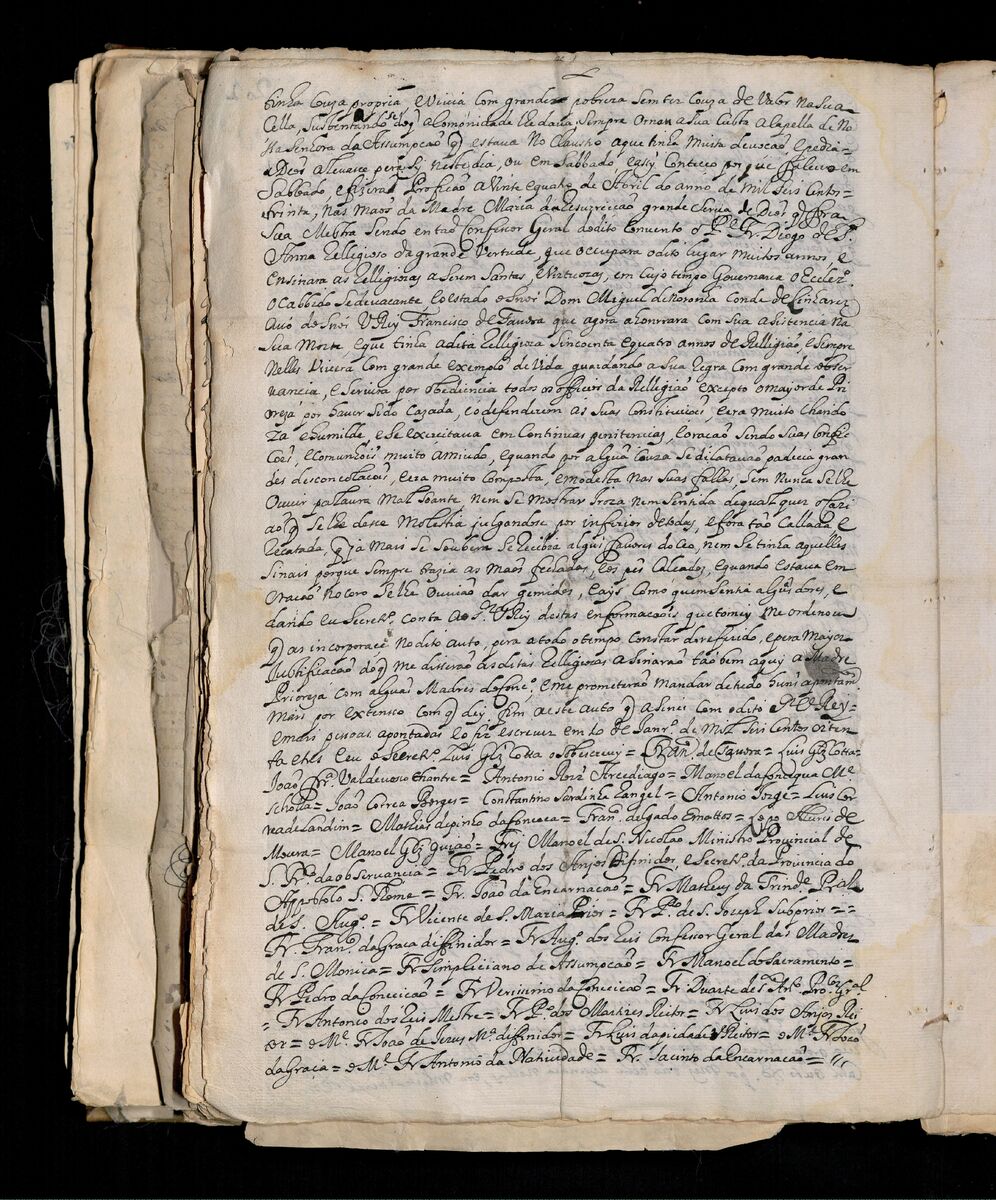 tinha couza propria, e vivia com grande pobreza sem ter couza de valor na sua
Cella, sustentandose do q̃ a Comonidade lhe dava, sempre ornou a sua custa a Capella de No
ssa Senhora da Assumpcaõ q̃ estava no Claustro a que tinha muita devocaõ e pedia
a Deos a levasse pera sy neste dia, ou em Sabbado e assy conteceo porque faleceo em
Sabbado e fizera profiçaõ a vinte equatro de Abril do anno de mil seis centos
trinta, nas maõs da Madre Maria da Resurreicaõ grande serva de Deos q̃ fora
sua Mestra sendo entaõ Confessor Geral do dito Convento o P.e Fr. Diogo de S.ta
Anna Relligioso da grande vertude, que occupara o dito lugar muitos annos, e
ensinara as Relligiosas a serem santas, e virtuozas, em cujo tempo governava o Eccles.o
o Cabbido sede vacante e o estado o S.nor Dom Miguel de Noronha Conde de Linhares
Avó do S.nor V Rey Francisco de Tavora que agora a honrara com sua asistencia na
sua morte, e que tinha a dita Relligiosa sincoenta equatro annos de Relligiaõ, e sempre
nelles vivera com grande exemplo de vida guardando a sua regra com grande obser
vancia, e servira por obediencia todos os officios da Relligiaõ excepto o mayor de Pri
oreza por haver sido cazada, e o defenderem as suas constituicões, e era muito charido
za e humilde, e se exercitava em continuas penitencias, e oracaõ sendo suas confis
coẽs, e comunhoẽs muito amiudo, e quando por algũa couza se dilatavaõ padecia gran
des desconsolacoẽs, e era muito composta, e modesta nas suas fallas, sem nunca se lhe
ouvir pallavra mal soante nem se mostrar iroza nem sentida de qual quer
q̃ se lhe desse molestia julgandose por inferior de todas, e fora taõ callada e
recatada, q̃ ja mais se soubera se recebia algũs favores do Ceo, nem se tinha aquelles
sinais porque sempre trazia as maõs fechadas, e os pes calcados, e quando estava em
oracaõ no coro se lhe ouviaõ dar gemidos, e ays como quem sentia algũas dores, e
dando eu Secret.o conta ao S.or V Rey destas enformacoẽs que tomey me ordenou
q̃ as incorporace no dito auto, pera a todo o tempo constar do referido, e pera mayor
justificacaõ do q̃ me disseraõ as ditas Relligiosas asinaraõ taõ bem aquy a Madre
Prioreza com algũas Madres do Conc.o e me prometeraõ mandar de tudo huns apontam.tos
mais por extenso com q̃ dey fim a este auto q̃ asinei com o dito S.r V Rey
e mais pessoas apontadas e o fiz escrever em de Janr.o de mil seis centos oiten
ta etres eu o Secret.o Luis Glz Cotta o sobescrevy = Fran.co de Tavora = Luis Glz Cotta =
Joaõ Valdevesso Chantre = Antonio Roiz Arcediago = Manoel da fonceca M.e
schola = Joaõ Correa Borges = Constantino Sardinha Rangel = Antonio Jorge = Luis Cor
rea de Landim = Mathias de pinho da fonceca = Fran.co delgado e mattos = Lopo Alvres de
Moura = Manoel Glz guiaõ = Frey Manoel de S. Nicolao Ministro Provincial de
S. Fr.co da observancia = Fr Pedro dos Anjos Difinidor, e Secret.o da Provincia do
Appostolo S. Thome = Fr. Joaõ da Encarnacaõ = Fr Matheus da Trind.e P.al
de S. Aug.o = Fr Vicente de S. Maria Prior = Fr P.o de S. Joseph Subprior = =
Fr. Fran.co da Graca diffinidor = Fr Aug.o dos Reis Confessor Geral das Madres
de S. Monica = Fr Simpliciano de Assumpcaõ = Fr Manoel do Sacramento =
Fr Pedro da Conceicaõ = Fr Verissimo da Conceicaõ = Fr Duarte de
= Fr Antonio dos Reis Mestre = Fr P.o dos Martires Reitor = Fr Luis dos Anjos Rei
or = o M.e Fr Joaõ de Jezus M.a diffinidor = Fr Luis da piedade Reitor = o M.e Fr Joaõ
da Graça = o M.e Fr Antonio da Natividade = Fr. Jacinto da Encarnacaõ =